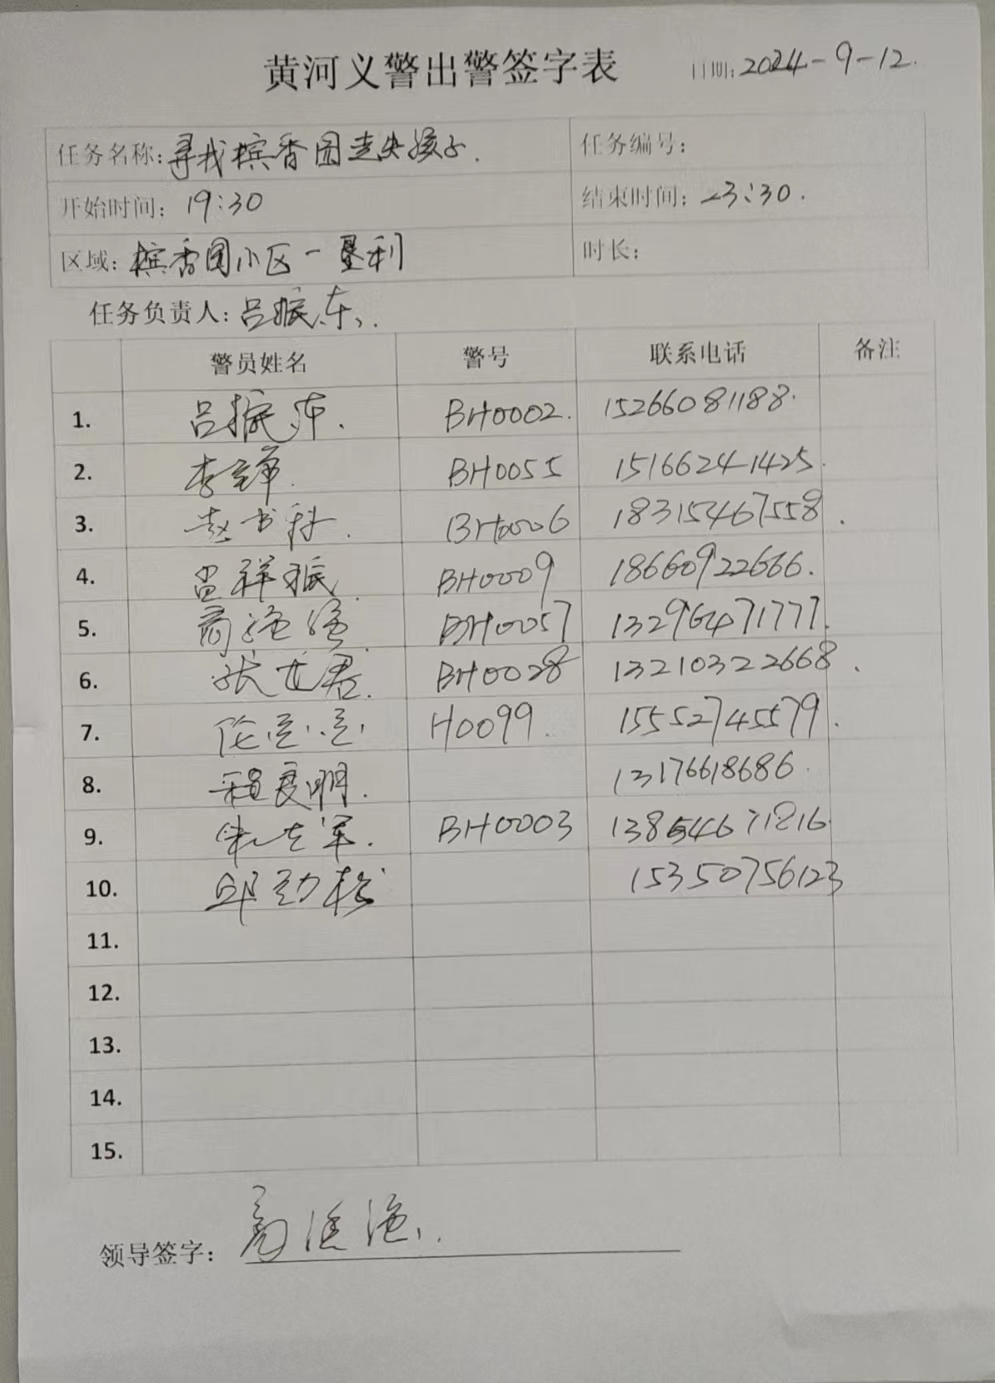 黄河义警出警签字表
日期:2024-9-12.
任务名称:寻找槟香园走失孩子.
任务编号:
开始时间: 19:30
结束时间: 23:30.
区域: 槟香园小区-垦利
时长:
任务负责人:吕振东.
警员姓名 警号 联系电话 备注
1. 吕振东. BH0002. 15266081188.
2. BH0055 15166241425.
3. 赵书科. BH0006 18315467558.
4. 祥振 BH0009 18660922666.
5. BH0057 13296471777.
6. 张世君. BH0028 13210322668.
7. H0099. 15552745579.
8. 程爱明. 13176618686.
9. 军. BH0003 13854671816.
10. 邱劲松 15350756123
11.
12.
13.
14.
15.
领导签字: